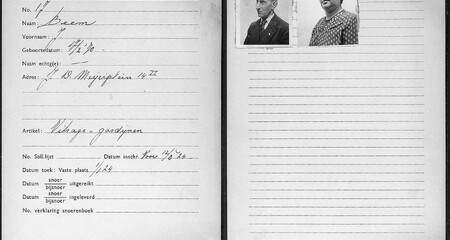 No. 17
Naam: Beem
Voornaam: J.
Geboortedatum:
Naam echtg(e): —
Adres: J. D. Meyerplein 14 III
Artikel: Vitrage - gordynen
No. Soll.lijst Datum inschr. Voor
Datum toek: Vaste plaats 1/1 24
Datum snoer uitgereikt
bijsnoer
Datum snoer ingeleverd
bijsnoer
No. verklaring snoerenboek